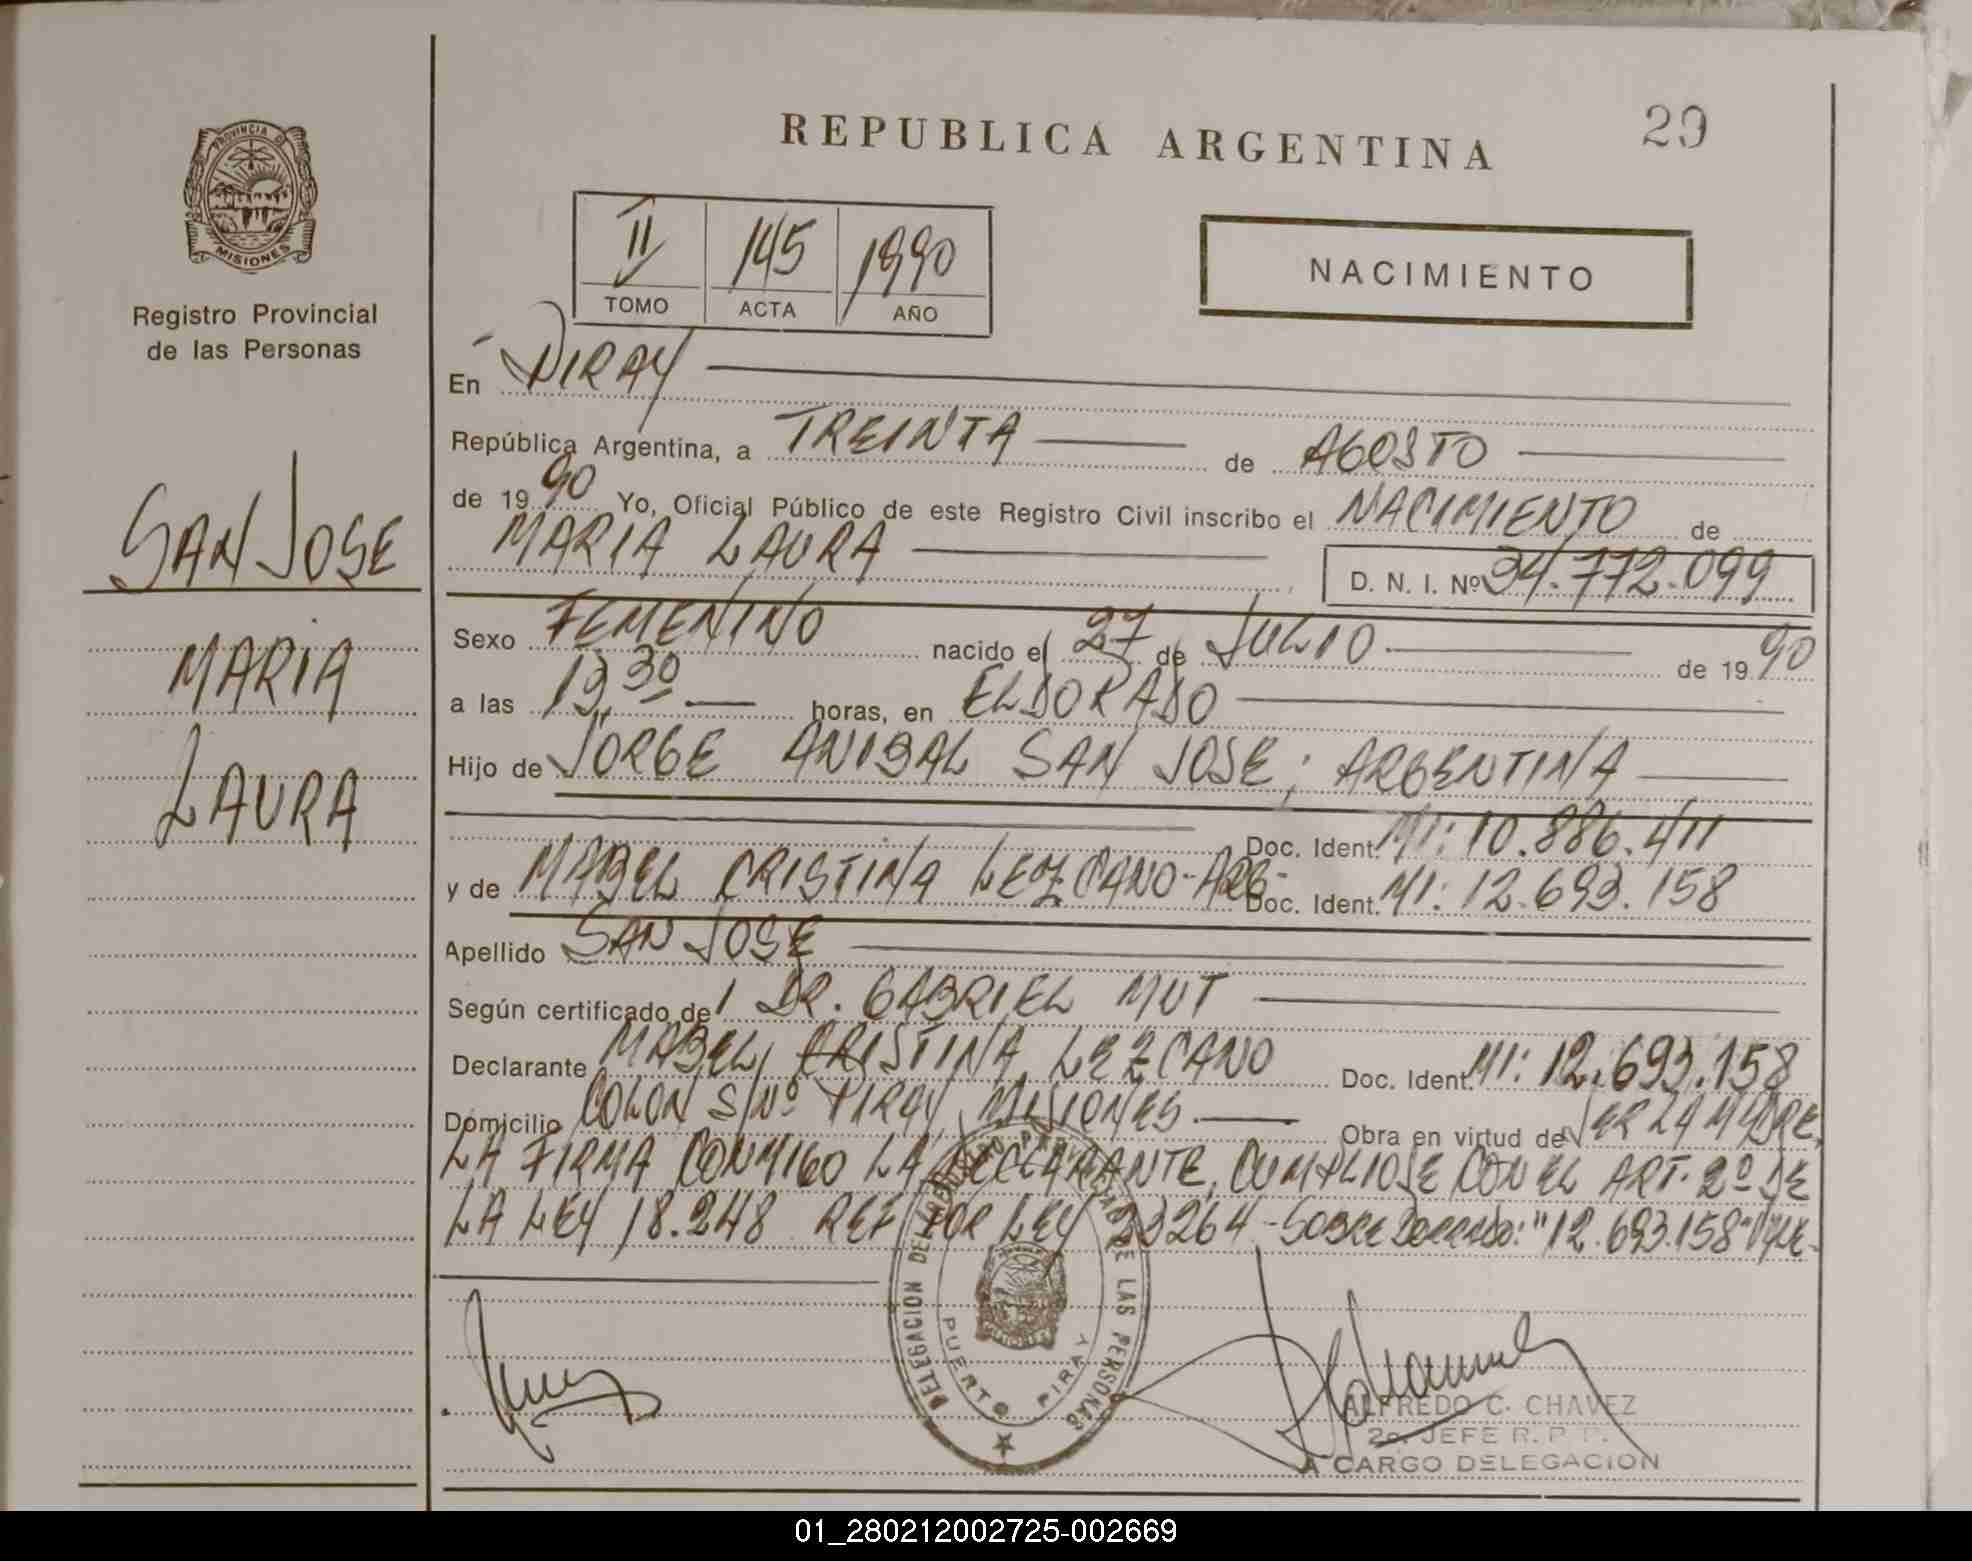 REPUBLICA ARGENTINA
29
PROVINCIA DE
MISIONES
Registro Provincial
de las Personas
SAN JOSE
MARIA
LAURA
II 145 1990
TOMO ACTA AÑO
NACIMIENTO
En PIRAY
República Argentina, a TREINTA de AGOSTO
de 1990 Yo, Oficial Público de este Registro Civil inscribo el NACIMIENTO de
MARIA LAURA D. N. I. Nº 34.772.099
Sexo FEMENINO nacido el 27 de JULIO de 1990
a las 19,30 horas, en ELDORADO
Hijo de JORGE ANIBAL SAN JOSE; ARGENTINA
Doc. Ident. MI: 10.886.411
y de MABEL CRISTINA LEZCANO-ARG- Doc. Ident. MI: 12.693.158
Apellido SAN JOSE
Según certificado de/ DR. GABRIEL MUT
Declarante MABEL CRISTINA LEZCANO Doc. Ident. MI: 12.693.158
Domicilio COLON S/Nº PIRAY, MISIONES Obra en virtud de SER LA MADRE,
LA FIRMA CONMIGO LA DECLARANTE, CUMPLIOSE CON EL ART. 2º DE
LA LEY 18.248 REF POR LEY 23264 - SOBRE BORRADO: "12.693.158" VALE-
DELEGACION DEL REGISTRO PROVINCIAL DE LAS PERSONAS
PUERTO PIRAY
ALFREDO C. CHAVEZ
2o. JEFE R. P. P.
A CARGO DELEGACION
01_280212002725-002669